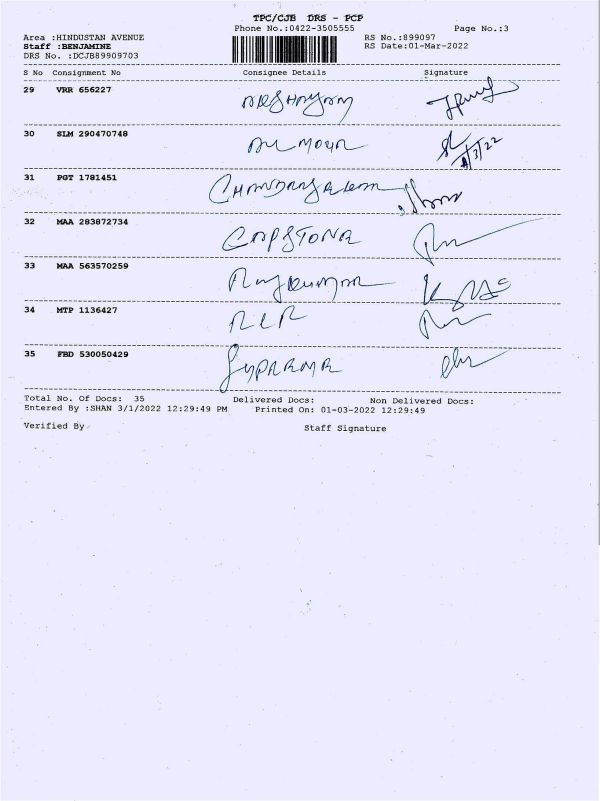 TPC/CJB DRS - PCP
Phone No.:0422-3505555 Page No.:3
Area :HINDUSTAN AVENUE RS No.:899097
Staff :BENJAMINE RS Date:01-Mar-2022
DRS No. :DCJB89909703
S No Consignment No Consignee Details Signature
29 VRR 656227
30 SLM 290470748
31 PGT 1781451
32 MAA 283872734 CAPSTONE
33 MAA 563570259 Rajkumar
34 MTP 1136427
35 FBD 530050429 SUPREME
Total No. Of Docs: 35 Delivered Docs: Non Delivered Docs:
Entered By :SHAN 3/1/2022 12:29:49 PM Printed On: 01-03-2022 12:29:49
Verified By Staff Signature